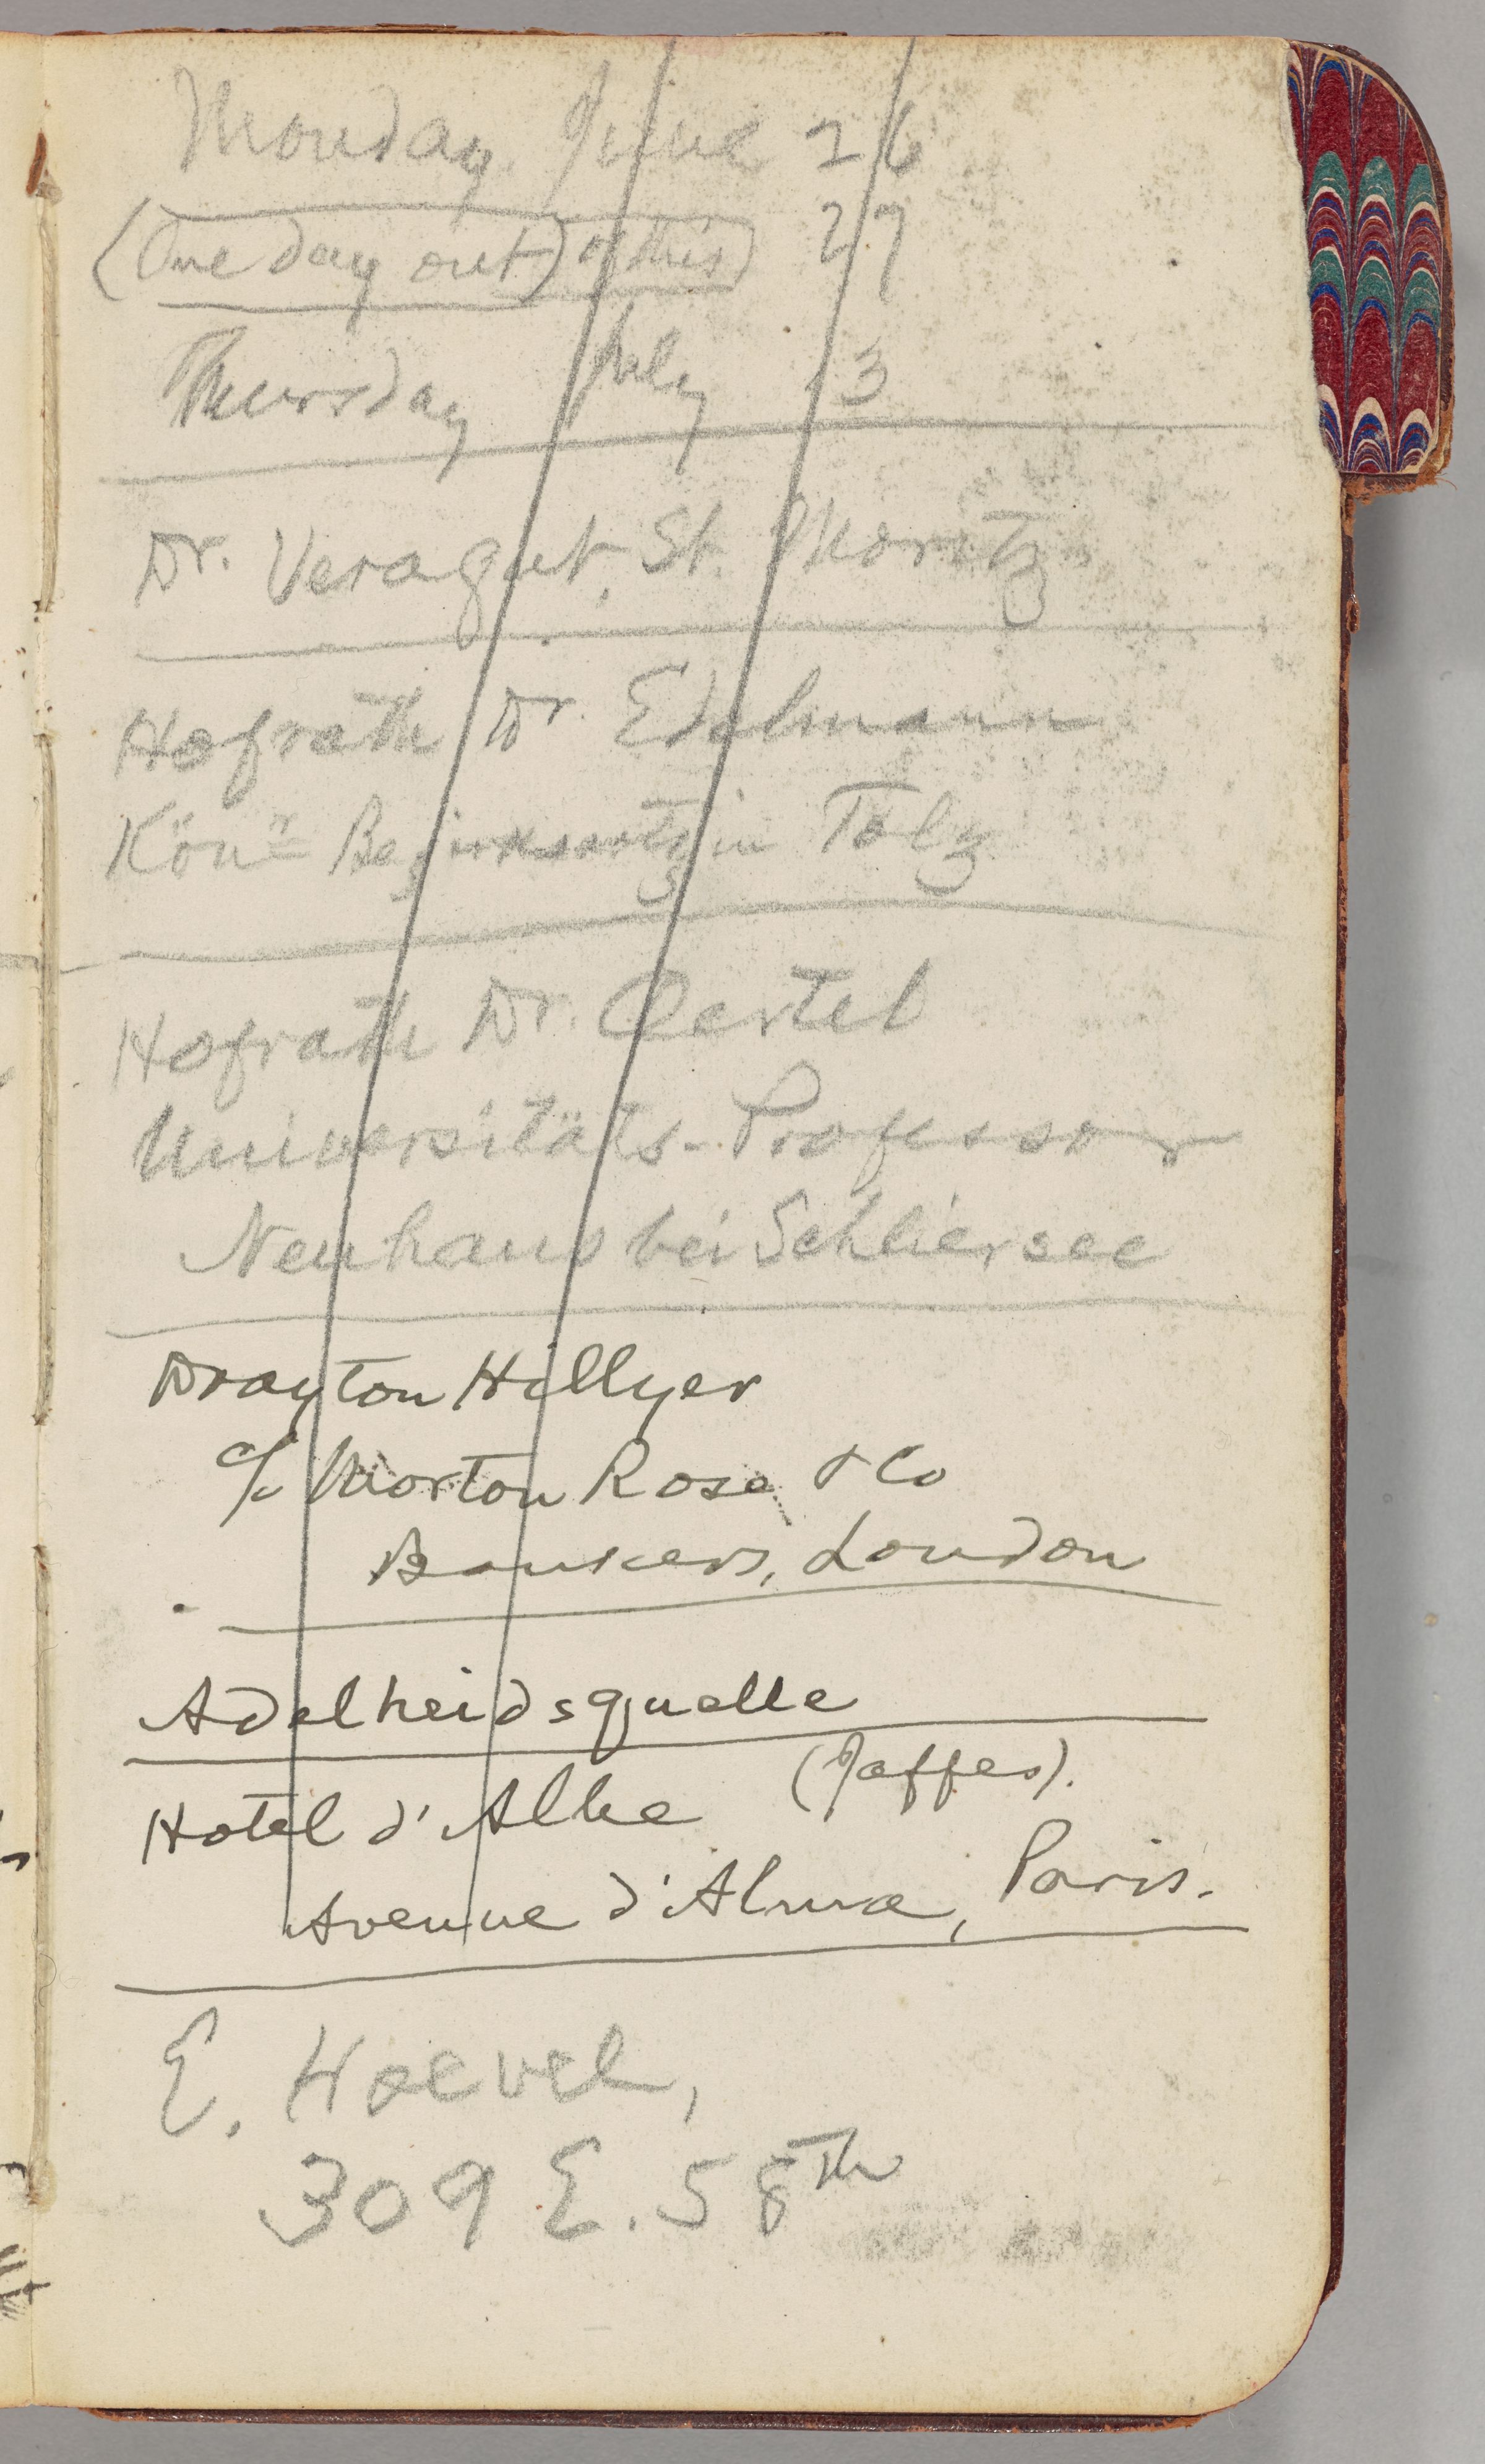 Monday June 26
(One day out) of this) 27
Thursday July 13
Dr. Veragut, St. Moritz
Hofrath Dr. Edelmann
Bezirksartz in Tölz
Hofrath Dr. Oertel
Universitäts-Professor
Neuhaus bei Schliersee
Drayton Hillyer
c/o Morton Rose & Co
Bankers, London
Adelheidsquelle
(Jaffes).
Hotel d'Albe
Avenue d'Alma, Paris.
E. Hoevel,
309 E. 58th